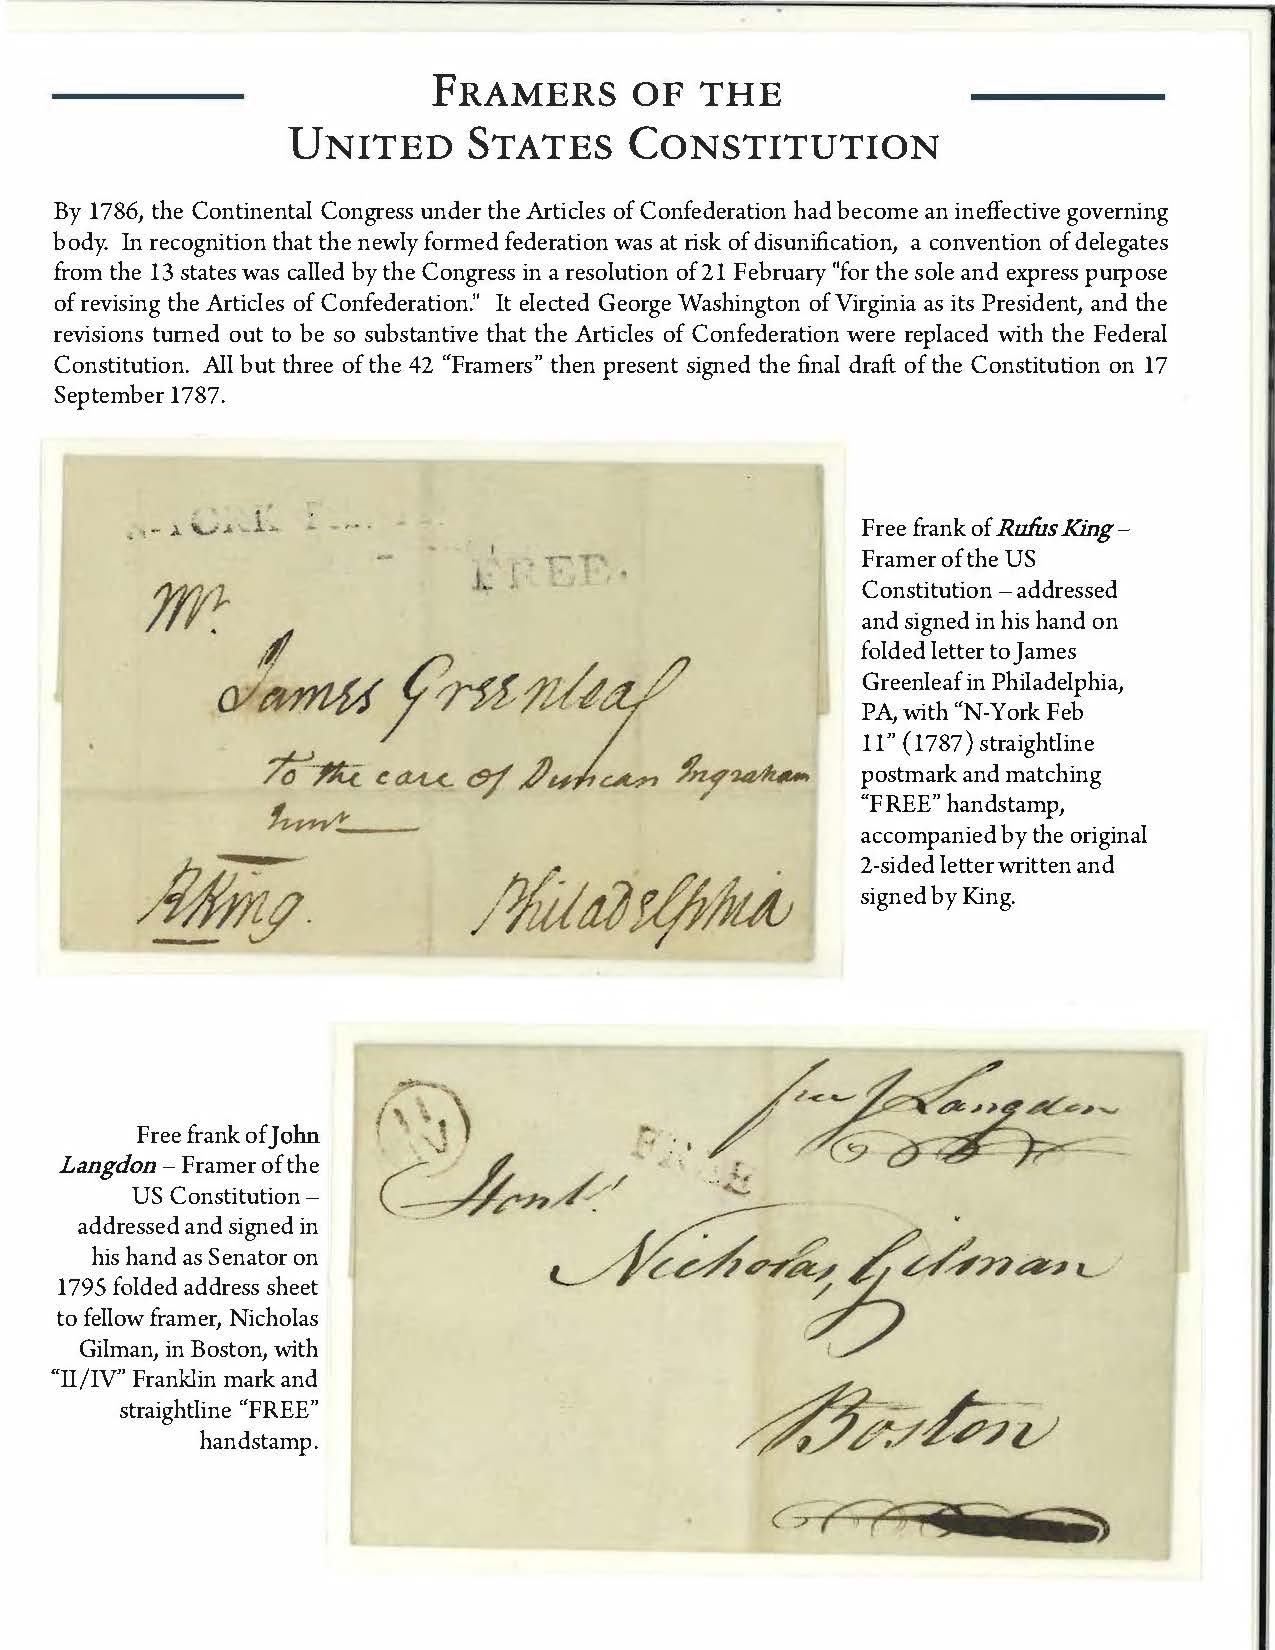 FRAMERS OF THE
UNITED STATES CONSTITUTION
By 1786, the Continental Congress under the Articles of Confederation had become an ineffective governing
body. In recognition that the newly formed federation was at risk of disunification, a convention of delegates
from the 13 states was called by the Congress in a resolution of 21 February "for the sole and express purpose
of revising the Articles of Confederation." It elected George Washington of Virginia as its President, and the
revisions turned out to be so substantive that the Articles of Confederation were replaced with the Federal
Constitution. All but three of the 42 “Framers” then present signed the final draft of the Constitution on 17
September 1787.
N-YORK
FREE.
Mr.
James Greenleaf
To the care of Duncan Ingraham
Junr
RKing.
Philadelphia
Free frank of Rufus King –
Framer of the US
Constitution – addressed
and signed in his hand on
folded letter to James
Greenleaf in Philadelphia,
PA, with “N-York Feb
11” (1787) straightline
postmark and matching
“FREE” handstamp,
accompanied by the original
2-sided letter written and
signed by King.
Free frank of John
Langdon – Framer of the
US Constitution –
addressed and signed in
his hand as Senator on
1795 folded address sheet
to fellow framer, Nicholas
Gilman, in Boston, with
“II/IV” Franklin mark and
straightline “FREE”
handstamp.
II
IV
free J Langdon
FREE
Honl.
Nicholas, Gilman
Boston